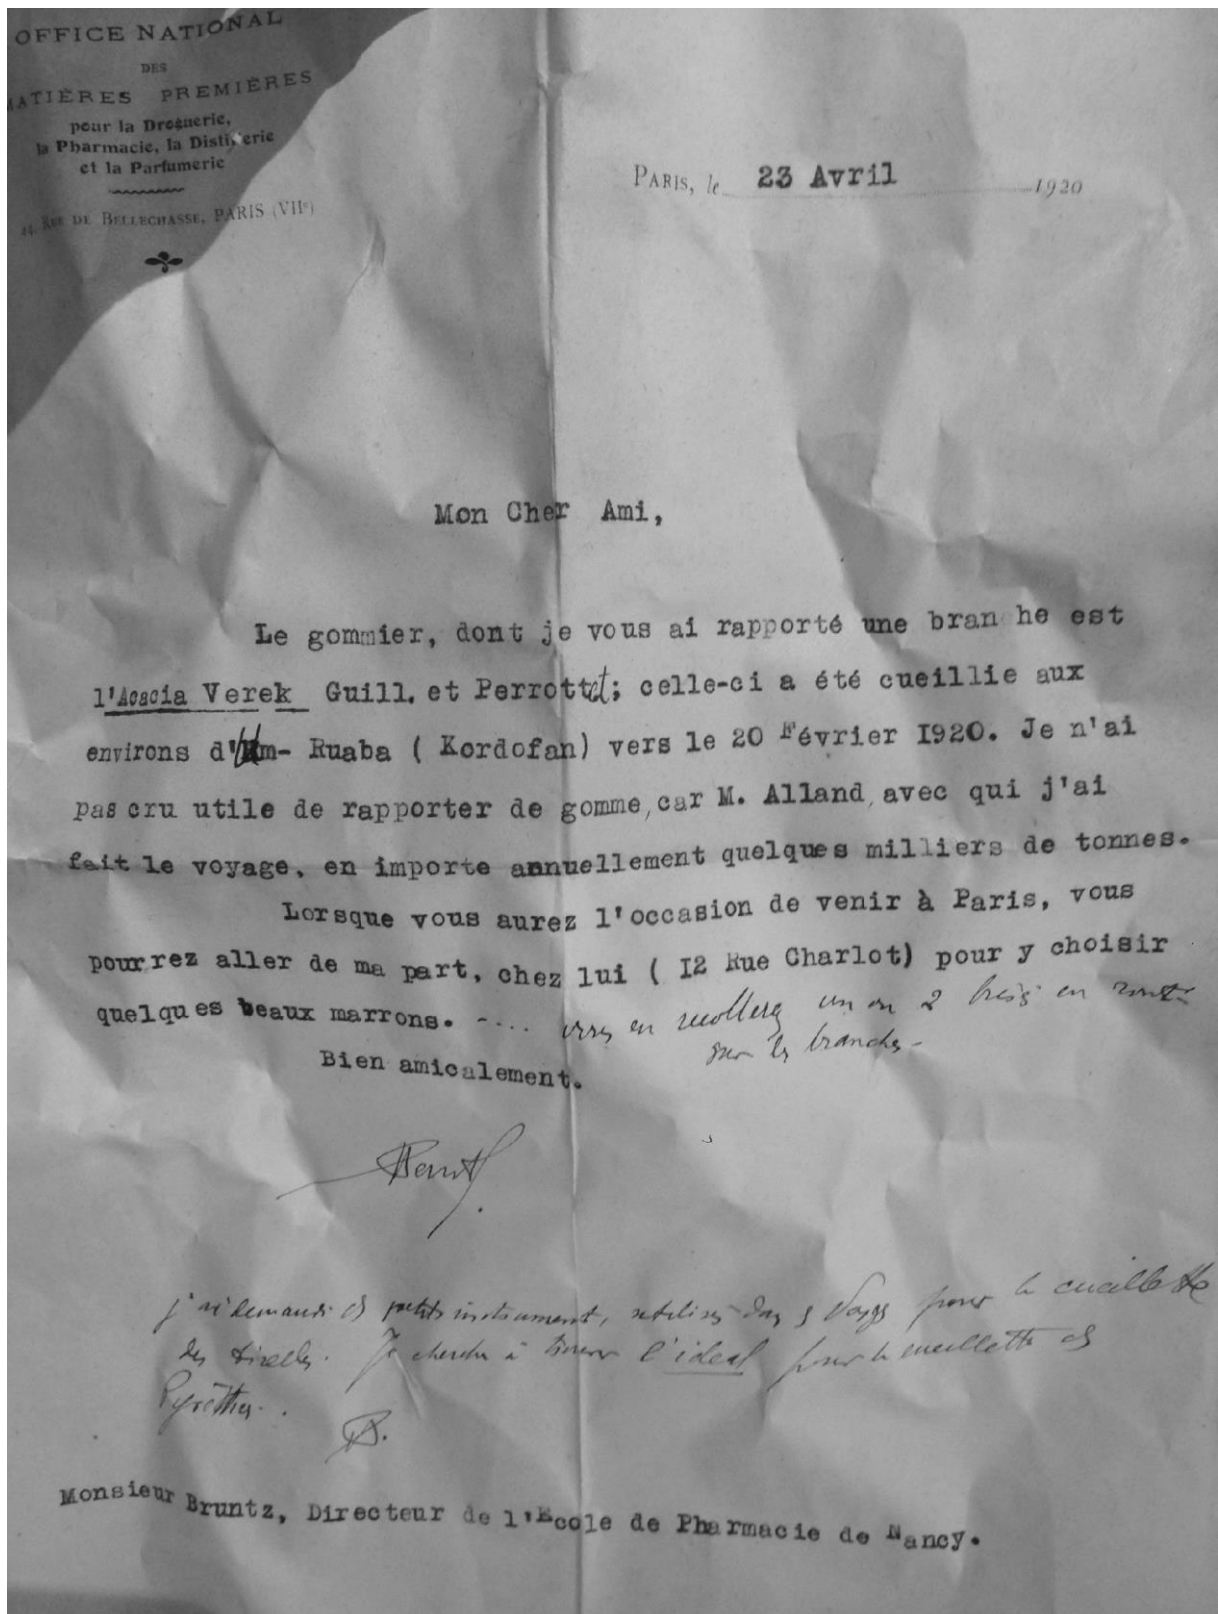 OFFICE NATIONAL
DES
MATIÈRES PREMIÈRES
pour la Droguerie,
la Pharmacie, la Distillerie
et la Parfumerie
44, RUE DE BELLECHASSE, PARIS (VIIe)
PARIS, le 23 Avril 1920
Mon Cher Ami,
Le gommier, dont je vous ai rapporté une bran he est
l'Acacia Verek Guill. et Perrottet; celle-ci a été cueillie aux
environs d'Um- Ruaba ( Kordofan) vers le 20 Février I920. Je n'ai
pas cru utile de rapporter de gomme, car M. Alland, avec qui j'ai
fait le voyage, en importe annuellement quelques milliers de tonnes.
Lorsque vous aurez l'occasion de venir à Paris, vous
pourrez aller de ma part, chez lui ( I2 Rue Charlot) pour y choisir
quelques beaux marrons. -... en un ou 2 en
sur les branches -
Bien amicalement.
j'ai demandé petits instruments, pour la cueillette
des Je cherche à trouver l'idéal pour la cueillette
Pyrèthres.
Monsieur Bruntz, Directeur de l'Ecole de Pharmacie de Nancy.